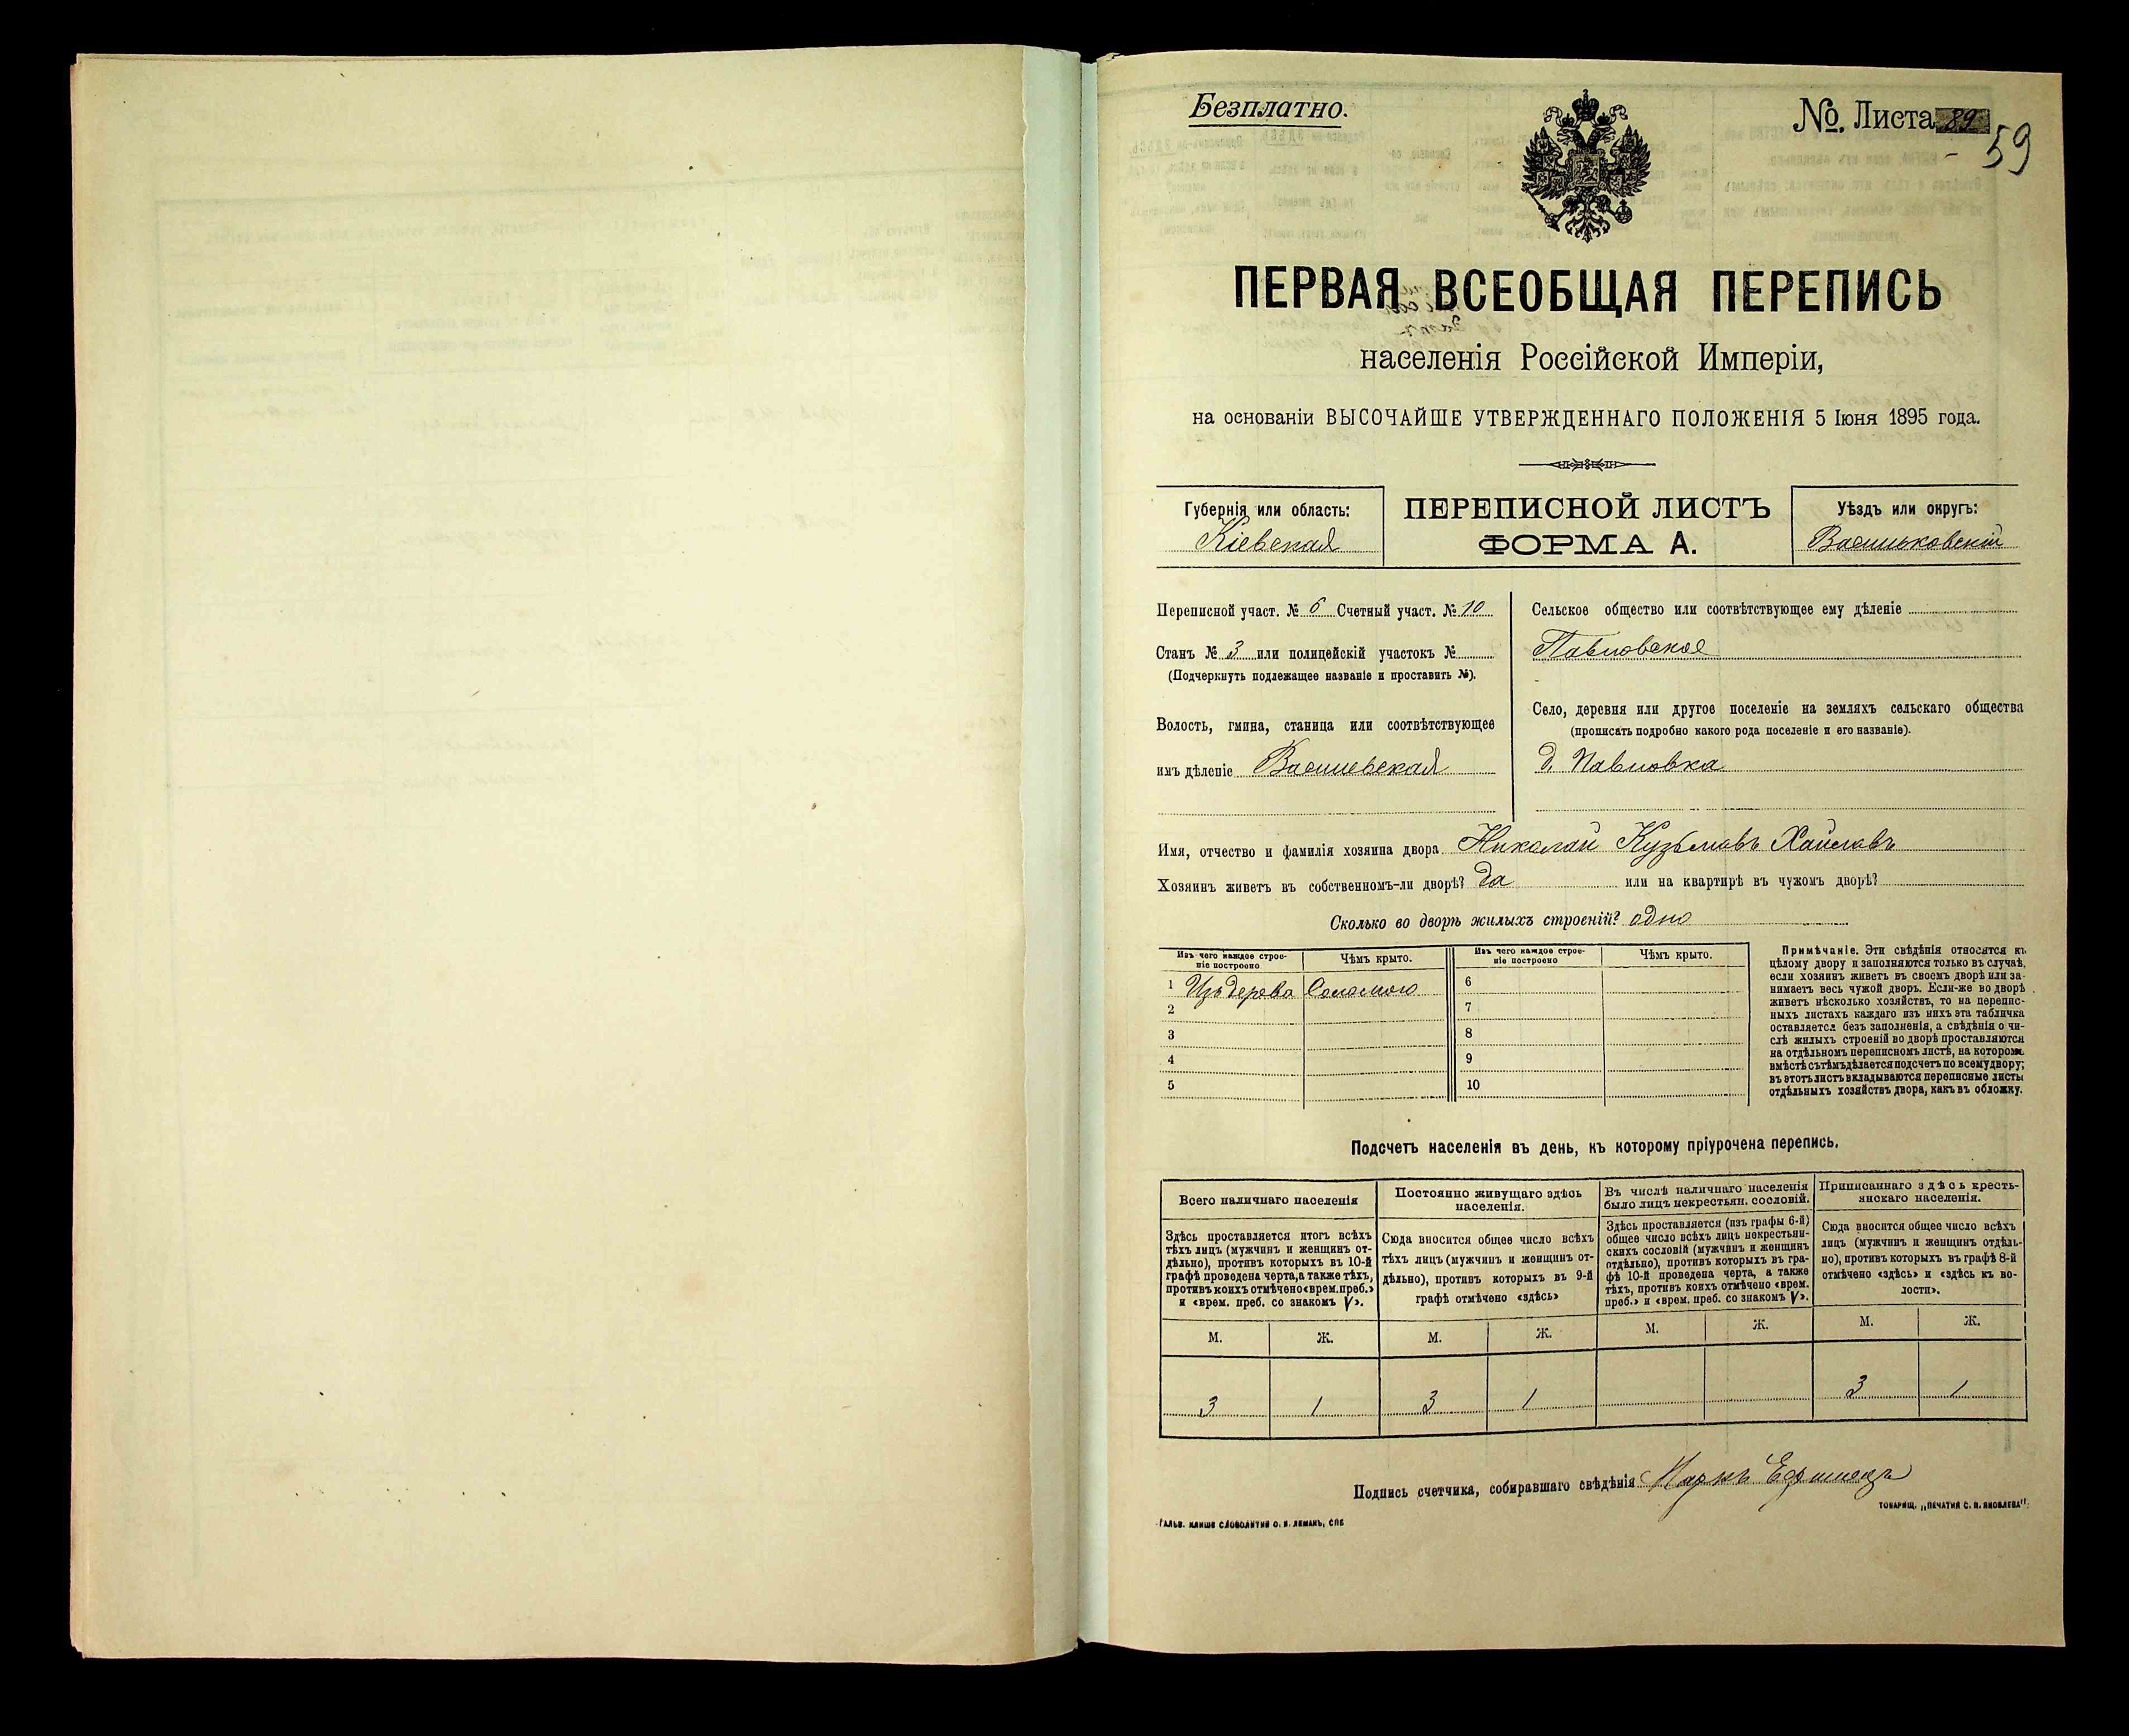 Безплатно.
№. Листа 89
59
ПЕРВАЯ ВСЕОБЩАЯ ПЕРЕПИСЬ
населенія Россійской Имперіи,
на основаніи ВЫСОЧАЙШЕ УТВЕРЖДЕННАГО ПОЛОЖЕНІЯ 5 Іюня 1895 года.
Губернія или область:
Кіевская
ПЕРЕПИСНОЙ ЛИСТЪ
ФОРМА А.
Уѣздъ или округъ:
Васильковскій
Переписной участ. № 6 Счетный участ. № 10
Станъ № 3 или полицейскій участокъ №
(Подчеркнуть подлежащее названіе и проставить №).
Волость, гмина, станица или соотвѣтствующее
имъ дѣленіе Васильевская
Сельское общество или соотвѣтствующее ему дѣленіе
Павловское
Село, деревня или другое поселеніе на земляхъ сельскаго общества
(прописать подробно какого рода поселеніе и его названіе).
д. Павловка
Имя, отчество и фамилія хозяина двора Николай Кузьмовъ
Хозяинъ живетъ въ собственномъ-ли дворѣ? да или на квартирѣ въ чужомъ дворѣ?
Сколько во дворѣ жилыхъ строеній? одно
Изъ чего каждое строе-
ніе построено
Чѣмъ крыто.
Изъ чего каждое строе-
ніе построено
Чѣмъ крыто.
1 Изъ дерева Соломою
2
3
4
5
6
7
8
9
10
Примѣчаніе. Эти свѣдѣнія относятся къ
цѣлому двору и заполняются только въ случаѣ,
если хозяинъ живетъ въ своемъ дворѣ или за-
нимаетъ весь чужой дворъ. Если-же во дворѣ
живетъ нѣсколько хозяйствъ, то на перепис-
ныхъ листахъ каждаго изъ нихъ эта табличка
оставляется безъ заполненія, а свѣдѣнія о чи-
слѣ жилыхъ строеній во дворѣ проставляются
на отдѣльномъ переписномъ листѣ, на которомъ
вмѣстѣ съ тѣмъ дѣлается подсчетъ по всему двору;
въ этотъ листъ вкладываются переписные листы
отдѣльныхъ хозяйствъ двора, какъ въ обложку.
Подсчетъ населенія въ день, къ которому пріурочена перепись.
Всего наличнаго населенія
Здѣсь проставляется итогъ всѣхъ
тѣхъ лицъ (мужчинъ и женщинъ от-
дѣльно), противъ которыхъ въ 10-й
графѣ проведена черта, а также тѣхъ,
противъ коихъ отмѣчено «врем. преб.»
и «врем. преб. со знакомъ V».
Постоянно живущаго здѣсь
населенія.
Сюда вносится общее число всѣхъ
тѣхъ лицъ (мужчинъ и женщинъ от-
дѣльно), противъ которыхъ въ 9-й
графѣ отмѣчено «здѣсь»
Въ числѣ наличнаго населенія
было лицъ некрестьян. сословій.
Здѣсь проставляется (изъ графы 6-й)
общее число всѣхъ лицъ некрестьян-
скихъ сословій (мужчинъ и женщинъ
отдѣльно), противъ которыхъ въ гра-
фѣ 10-й проведена черта, а также
тѣхъ, противъ коихъ отмѣчено «врем.
преб.» и «врем. преб. со знакомъ V».
Приписаннаго здѣсь кресть-
янскаго населенія.
Сюда вносится общее число всѣхъ
лицъ (мужчинъ и женщинъ отдѣль-
но), противъ которыхъ въ графѣ 8-й
отмѣчено «здѣсь» и «здѣсь къ во-
лости».
М. Ж. М. Ж. М. Ж. М. Ж.
3 1 3 1 3 1
Подпись счетчика, собиравшаго свѣдѣнія Маркъ
ТОВАРИЩ. „ПЕЧАТНЯ С. П. ЯКОВЛЕВА".
ГАЛЬВ. КЛИШЕ СЛОВОЛИТНИ О. И. ЛЕМАНЪ, СПБ